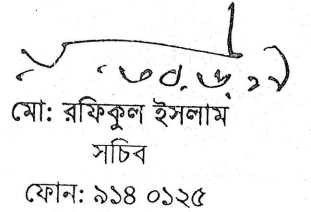 মো: রফিকুল ইসলাম
সচিব
ফোন: ৯১৪ ০১২৫